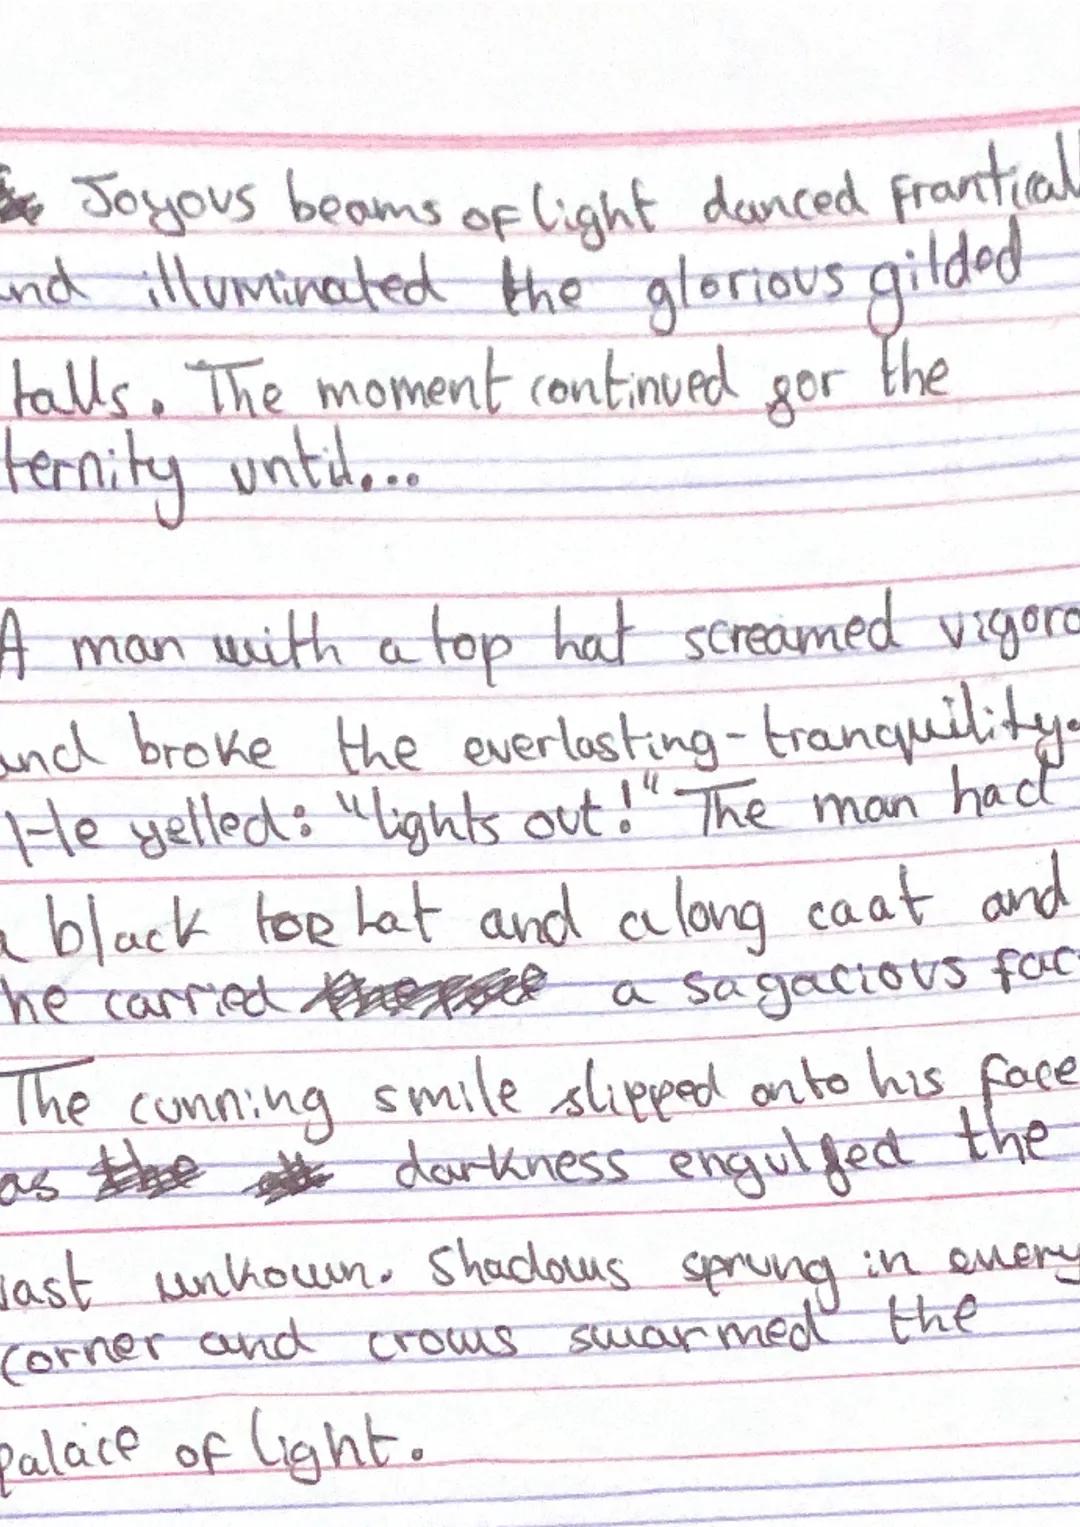 Joyous beams of light danced franticall
nd illuminated the glorious gilded
talls. The moment continued gor the
ternity until...
A man with a top hat screamed vigoro
and broke the everlasting-tranquility.
He yelled: "lights out!" The man had
a black top hat and a long caat and
he carried a sagacious fac
The cunning smile slipped onto his face
as the darkness engulfed the
vast unkown. Shadows sprung in every
corner and crows swarmed the
palace of light.